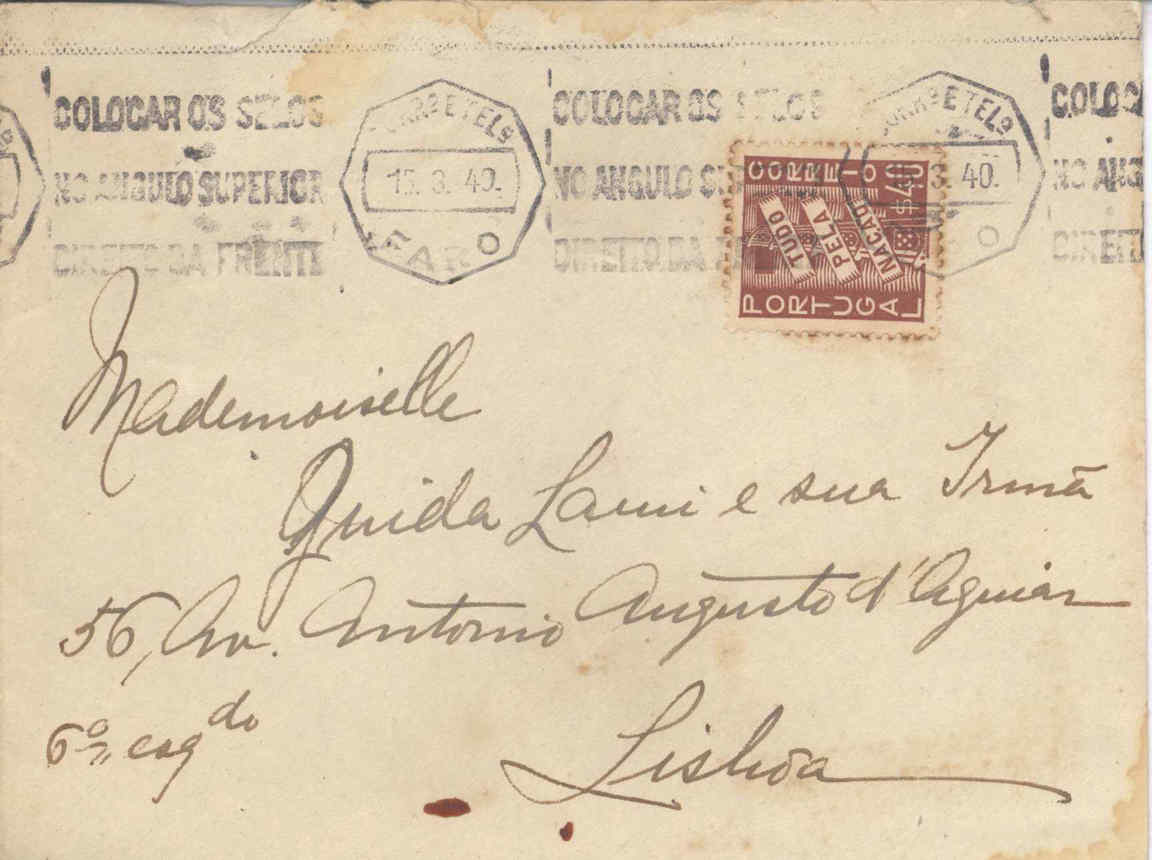 COLOCAR OS SELOS
NO ANGULO SUPERIOR
DIREITO DA FRENTE
CORRº E TELº
15. 3. 40.
FARO
COLOCAR OS SELOS
NO ANGULO
DIREITO DA
CORRº E TELº
3. 40.
O
COLOC
NO ANG
DIREITO
CORREIO
$40
TUDO
PELA
NAÇÃO
PORTUGAL
Mademoiselle
Guida Lami e sua Irmã
56, Av. Antonio Augusto d'Aguiar
6º, esqdo
Lisboa